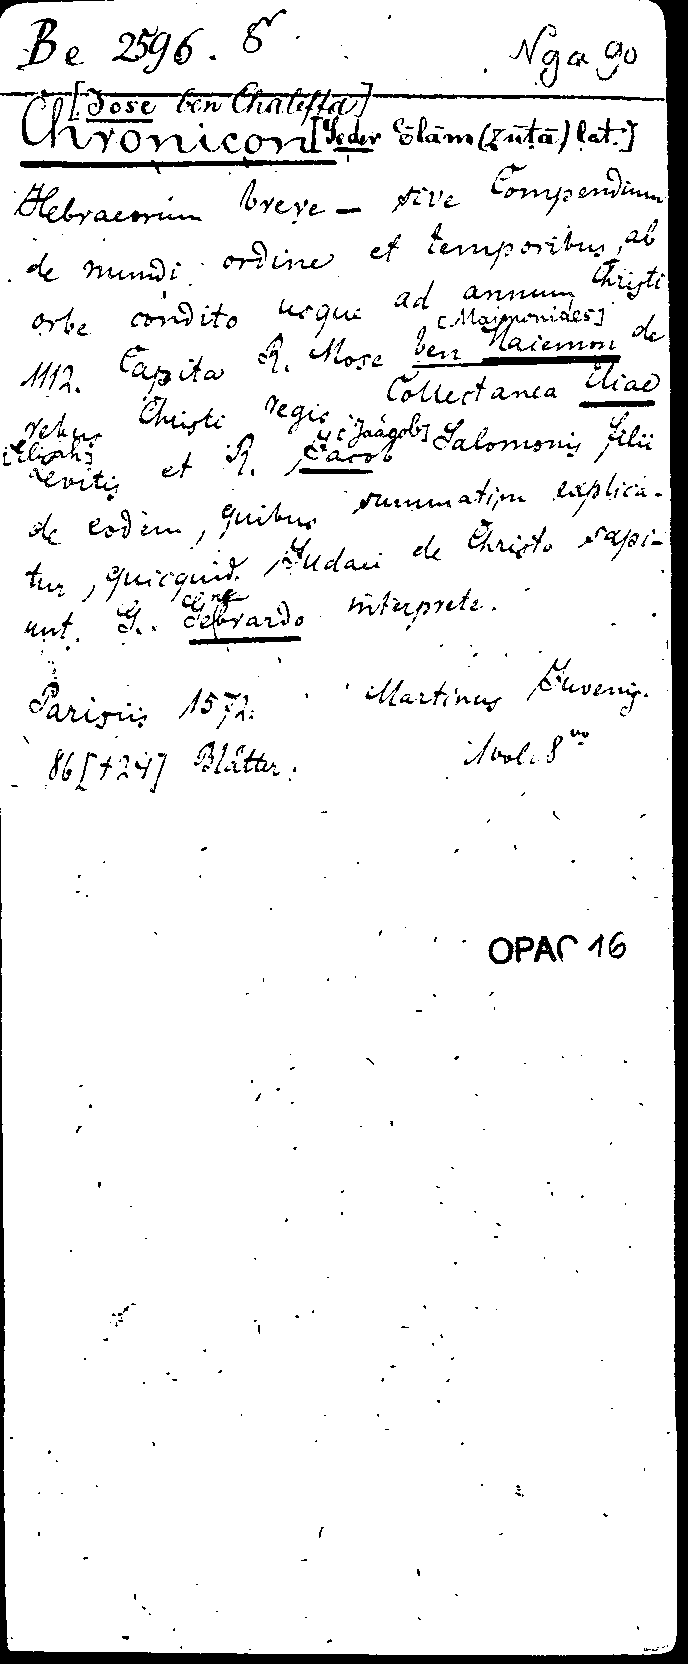 Be 2596. 8º Nga 90
[Jose ben Chaleffa]
Chronicon [Seder Ōlām (zuṭā) lat.]
Hebraeorum breve — sive Compendium
de mundi ordine et temporibus, ab
orbe condito usque ad annum Christi
[Maimonides]
1112. Capita R. Mose ben Maiemon de
rebus Christi regis Collectanea Eliae
[Elijah] [Jaáqob]
Levitis et R. Jacob Salomonis filii
de eodem, quibus summatim explica-
tur, quicquid Judaei de Christo sapi-
unt. G. Gebrardo interprete.
Parisiis 1572. Martinus Juvenis.
86 [+24] Blätter. 1 vol. 8vo
OPAC 16